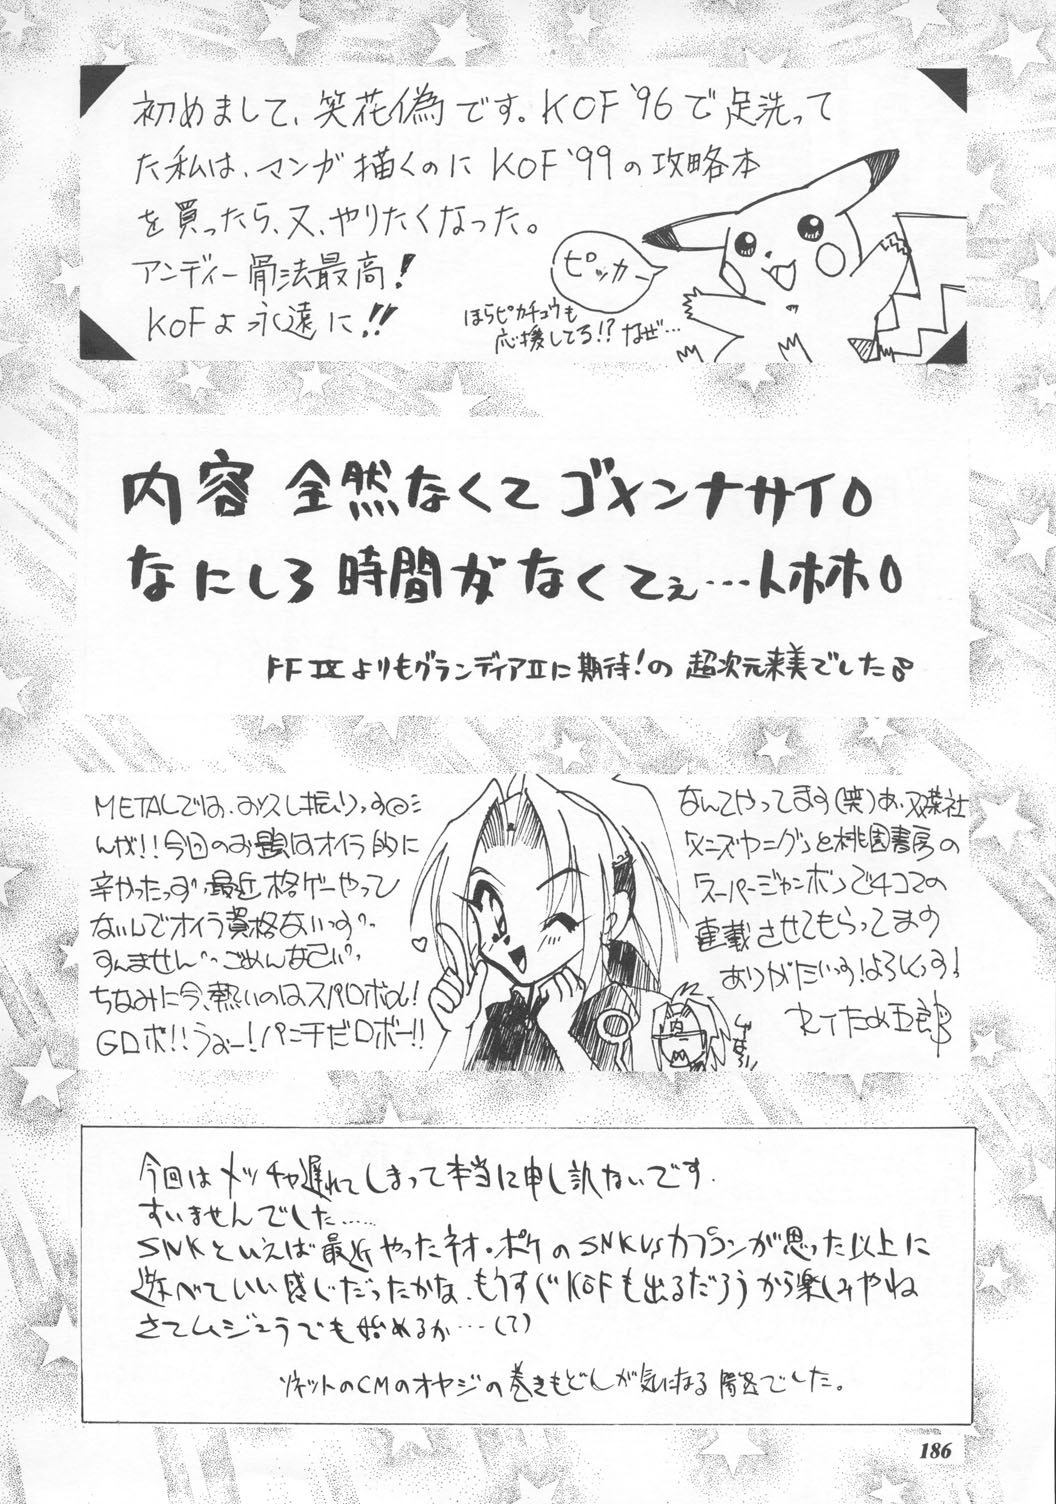 初めまして、笑花偽です。KOF'96で足洗って
た私は、マンガ描くのにKOF'99の攻略本
を買ったら、又、やりたくなった。
アンディー骨法最高!
KOFよ永遠に!!
ピッカー
ほらピカチュウも
応援してる!?なぜ…
内容 全然なくてゴメンナサイ。
なにしろ時間がなくてぇ…トホホ。
FFⅨよりもグランディアⅡに期待!の 超次元来美でした
METALでは、お久し振りっす@シ
んが!!今回のお題はオイラ的に
辛かったっす 最近格ゲーやって
ないんでオイラ資格ないっす
すんません ごめんなさい
ちなみに今、熱いのはスパロボα!
Gロボ!!うぉー!パンチだロボー!!
なんてやってます(笑)あ、双葉社
メンズヤングと桃園書房の
スーパージャンボンで4コマの
連載させてもらってます
ありがたいっす!よろしくっす!
今回はメッチャ遅れてしまって本当に申し訳ないです.
すいませんでした……
SNKといえば最近やったネオ・ポケのSNKvsカプコンが思った以上に
遊べていい感じだったかな、もうすぐKOFも出るだろうから楽しみやね
さてムジュラでも始めるか…
ソネットのCMのオヤジの巻きもどしが気になる でした。
186